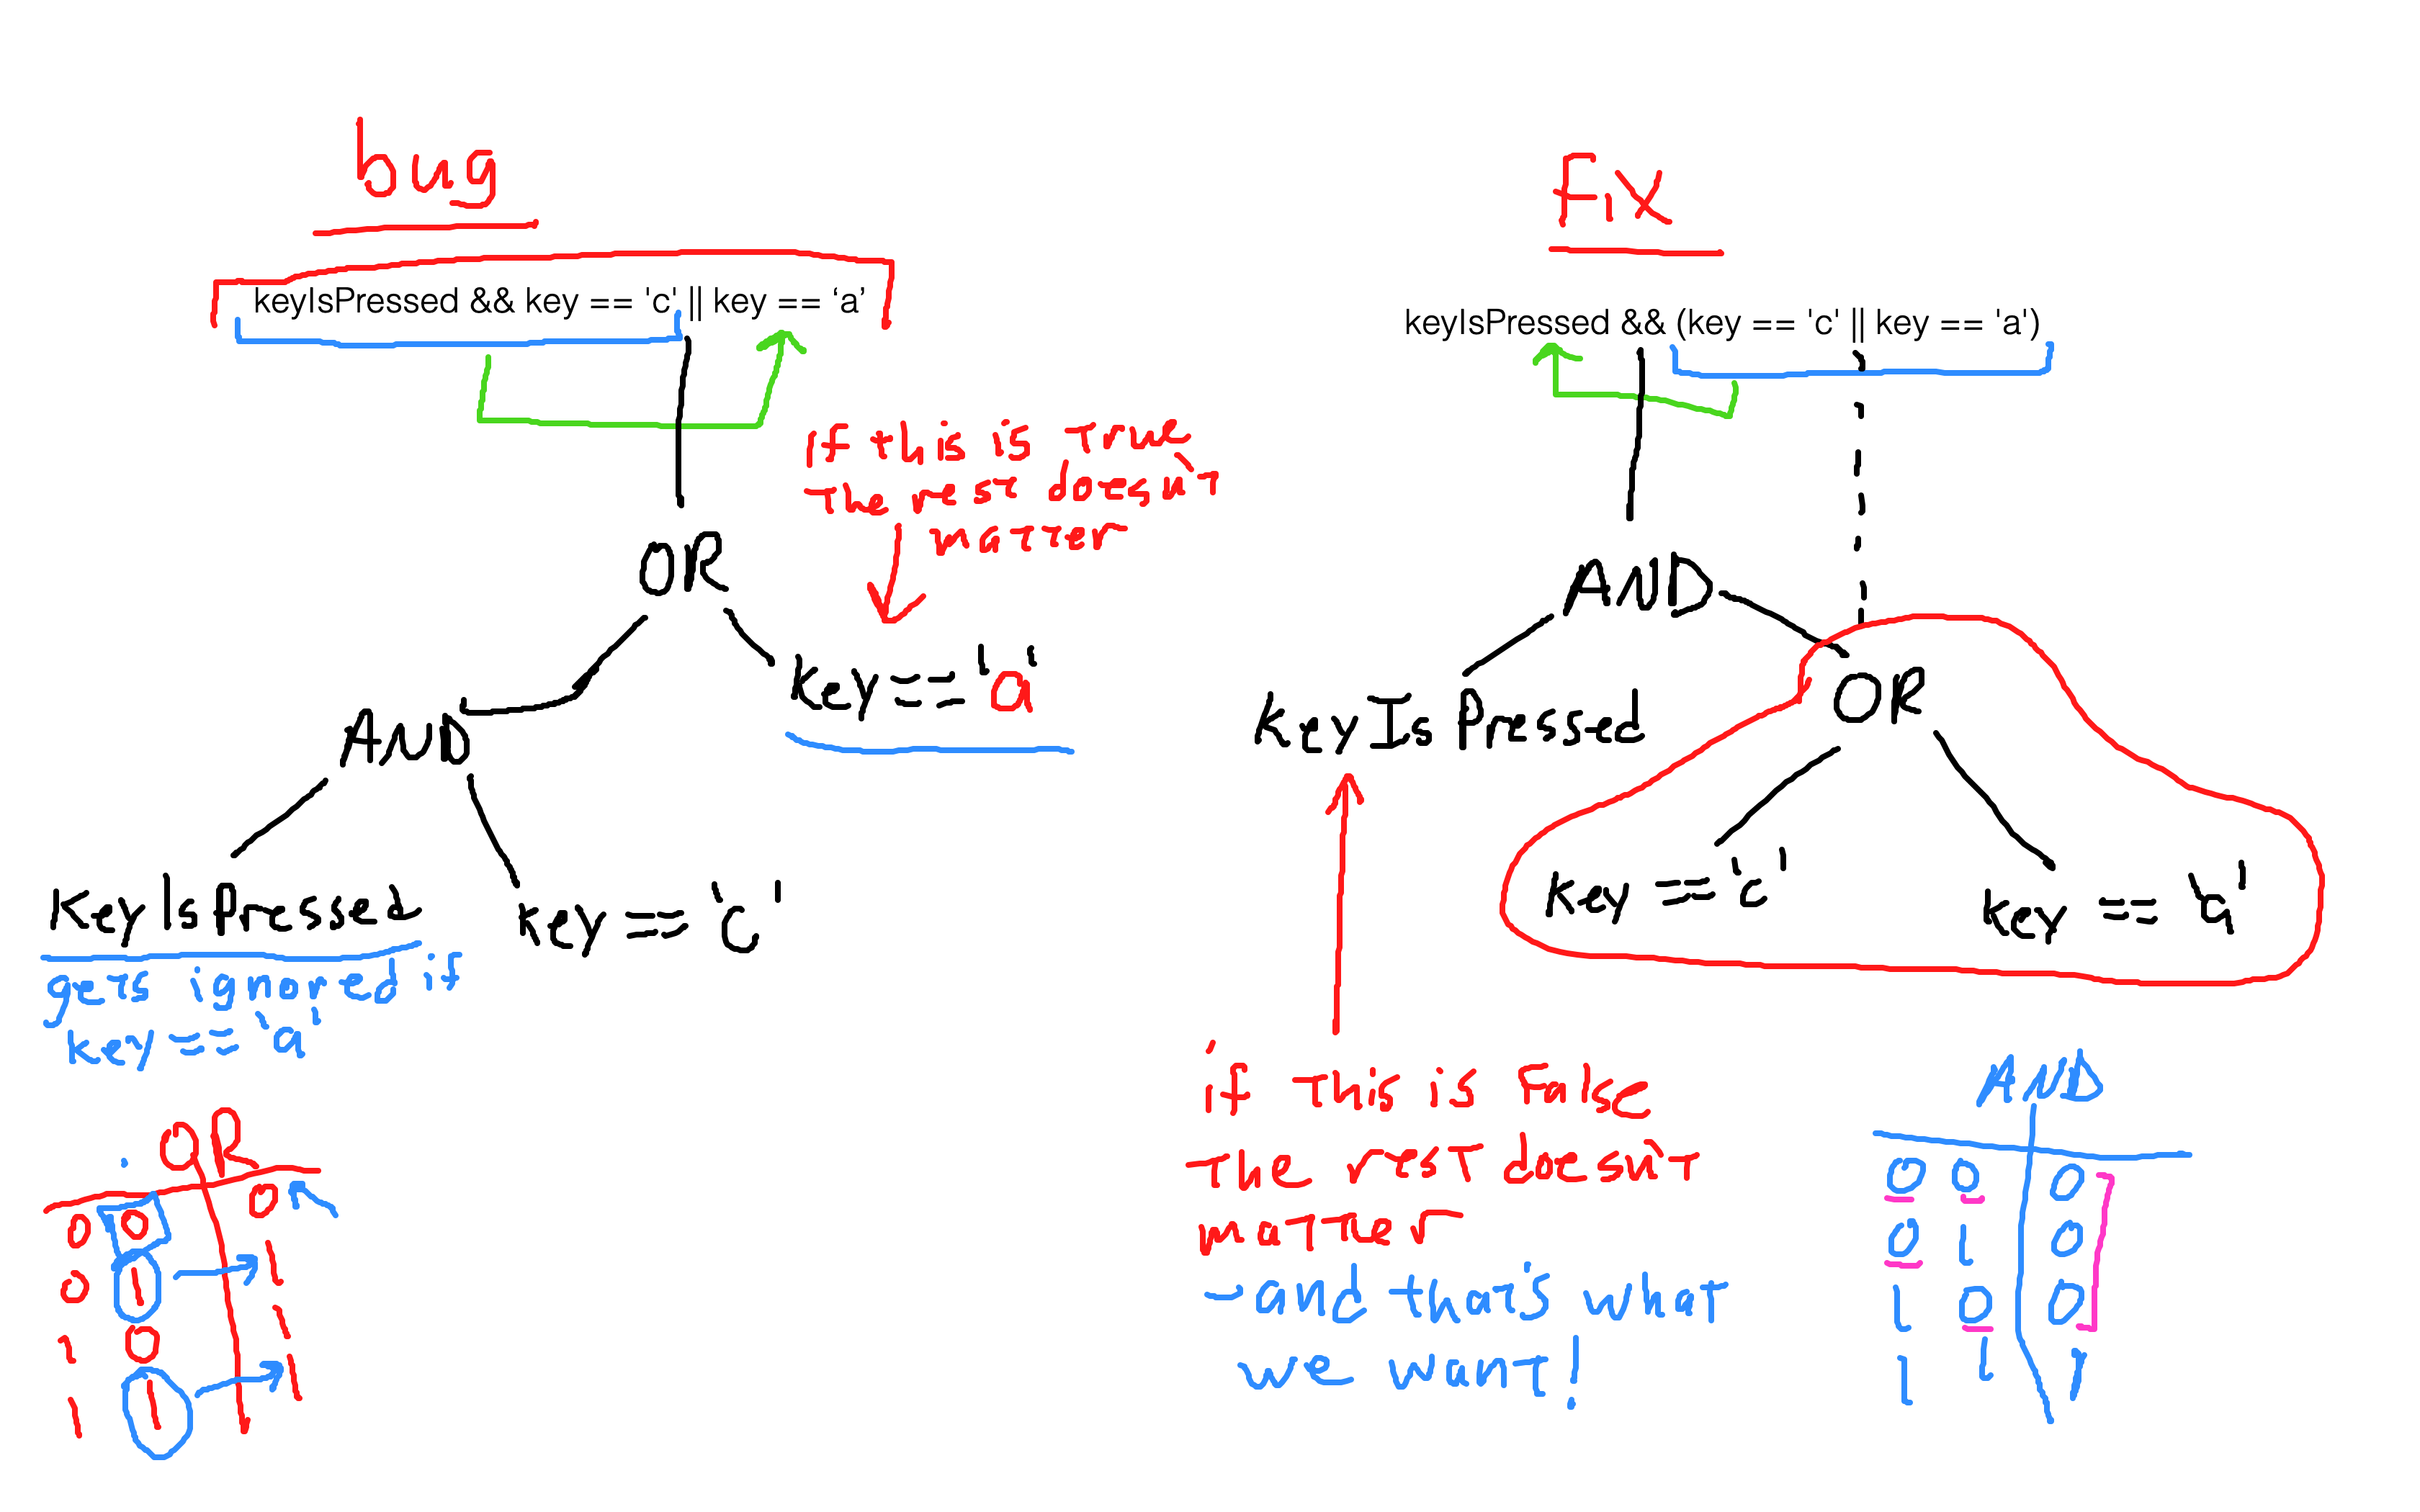 bug
keyIsPressed && key == 'c' || key == ‘a’
if this is true
the rest doesn't
matter
OR
AND
key == 'a'
KeyIsPressed
key == 'c'
gets ignored if
key == 'a'
OR
0 0 0
0 1 1
1 0 1
1 1 1
Fix
keyIsPressed && (key == 'c' || key == 'a')
AND
KeyIsPressed
OR
key == 'c'
key == 'a'
if this is false
the rest doesn't
matter
- and that's what
we want!
AND
0 0 0
0 1 0
1 0 0
1 1 1